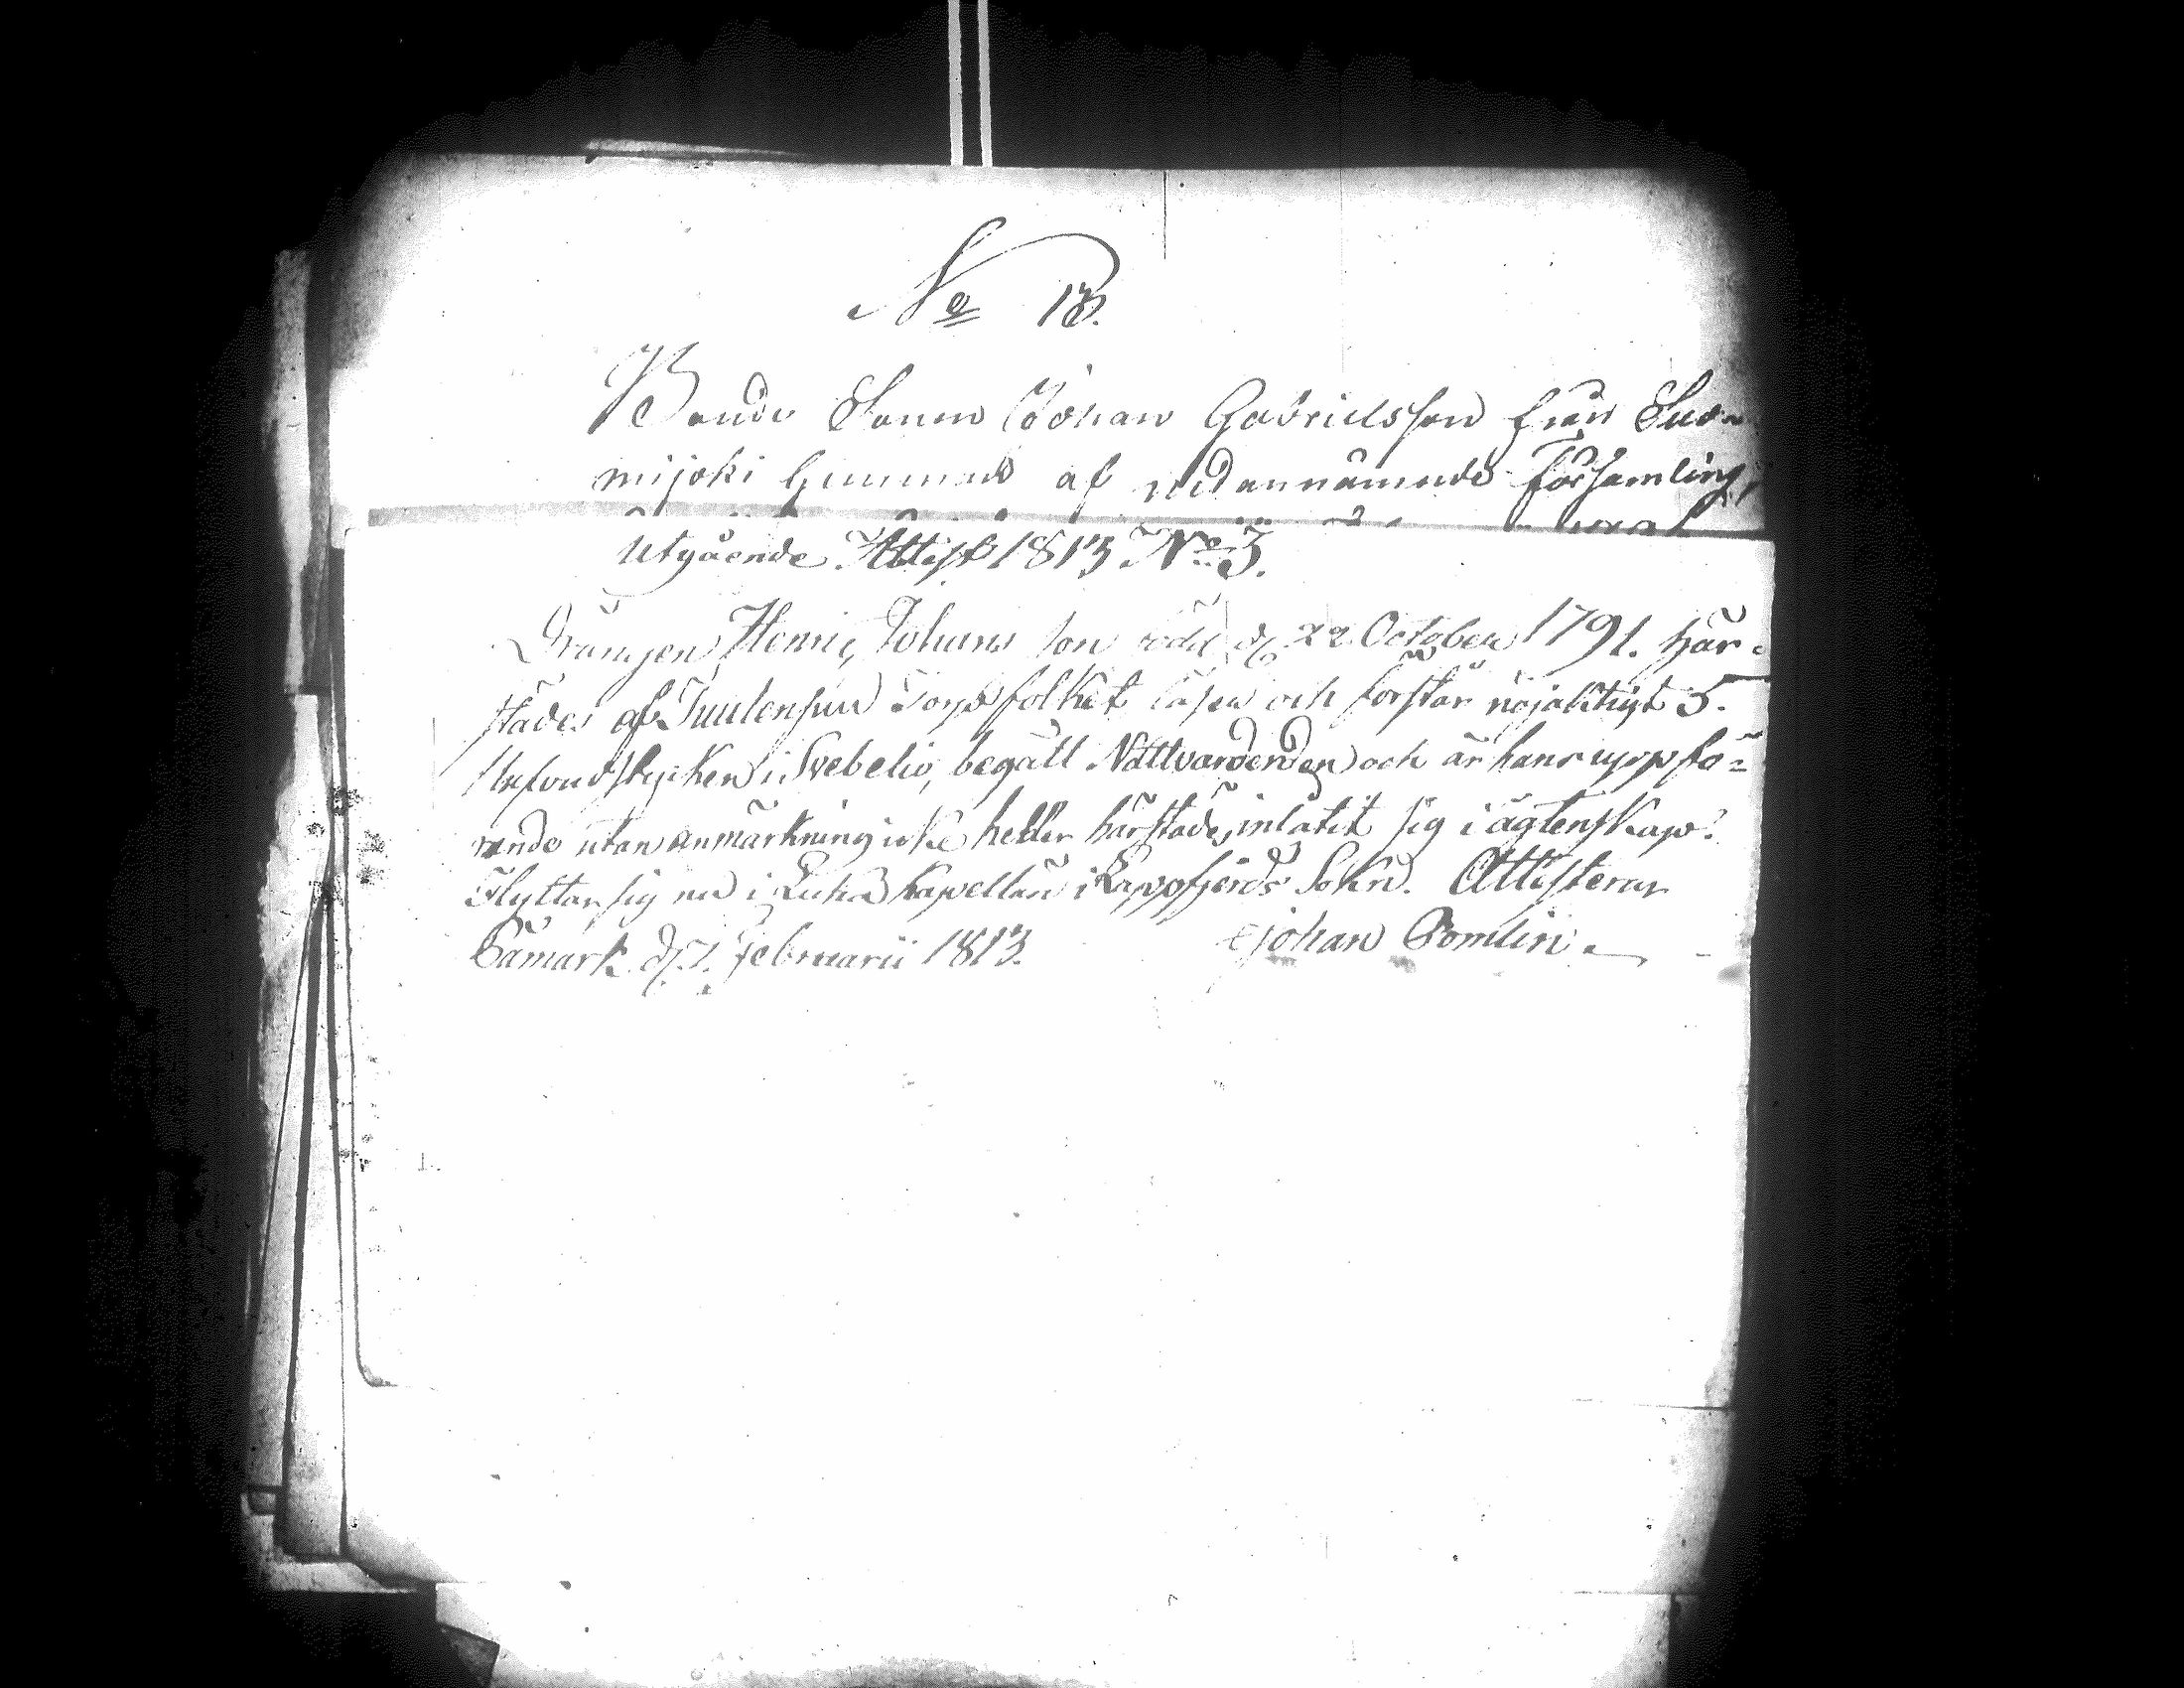 No 13.
Bonde Sonen Johan Gabrielsson från Suo-
mijoki hemman af nedannämnde Församling,
Utgående Attest 1813 No 3.
Drängen Henric Johans son född d. 22 October 1791. här-
städes af Torpfolket läser och förstår nöjaktigt 5.
hufvudstycken i Svebelio, begått Nattvarderden och är hans uppfö=
rande utan anmärkning icke heller härstädes inlåtit sig i ägtenskap.
Flyttar sig nu i Kapellan i Lappfjerds Sokn. Attesterar
Sämark d. 7. Februarii 1813. Johan Romlin.